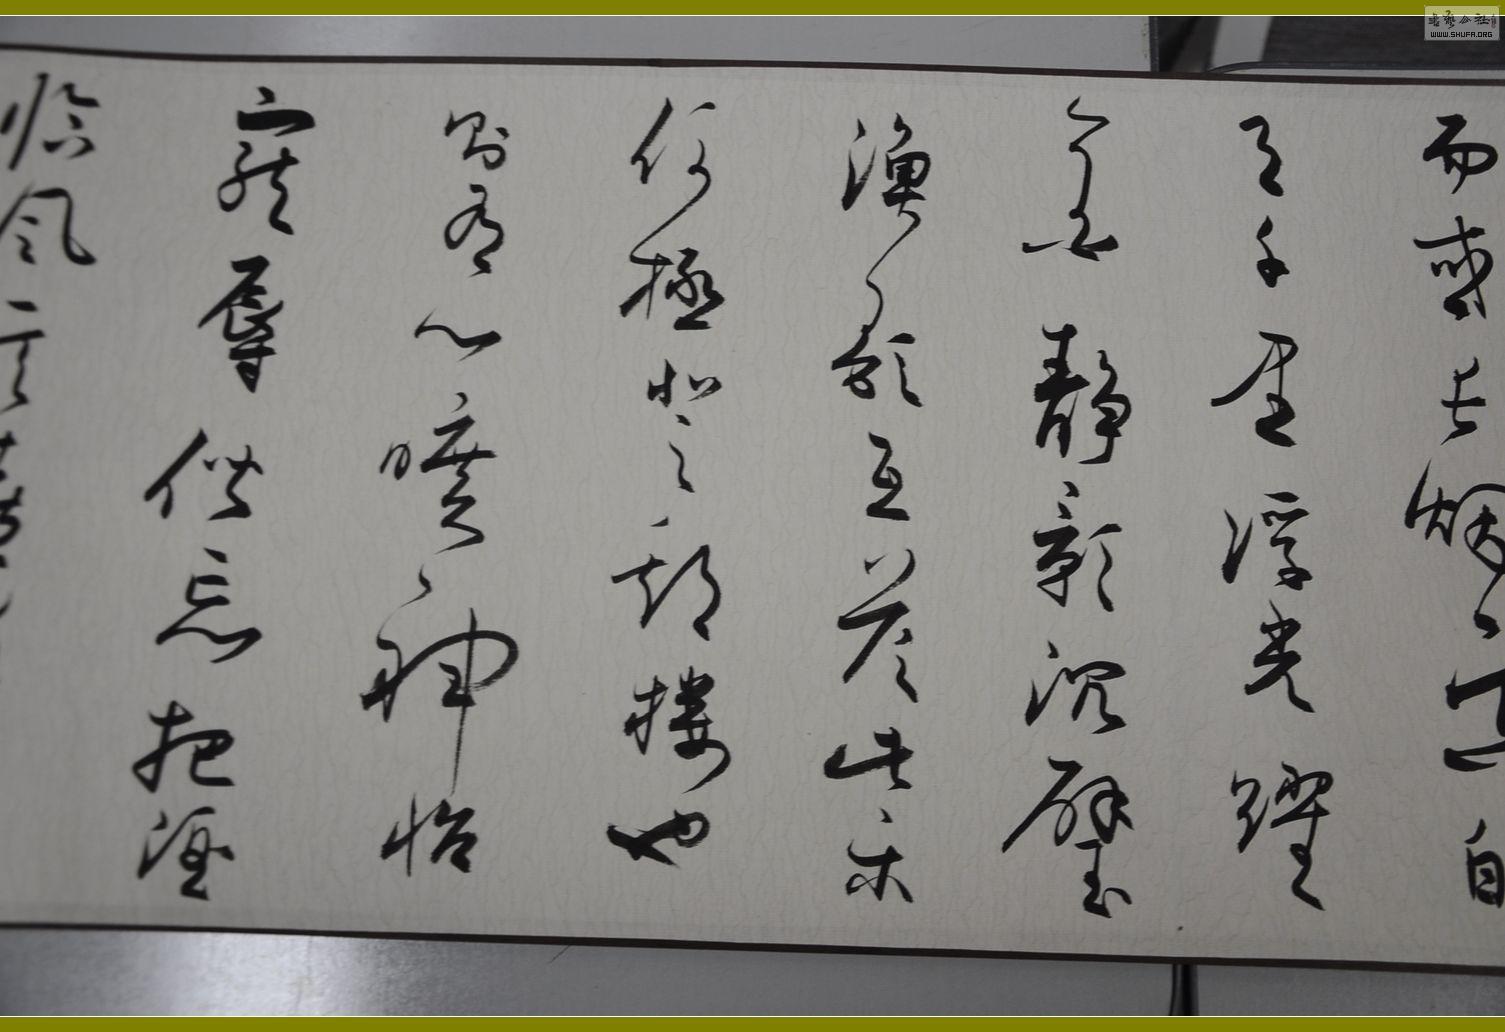 而或長烟一空皓
月千里浮光躍
金靜影沉璧
漁歌互答此樂
何極登斯樓也
則有心曠神怡
寵辱偕忘把酒
臨風其喜
書藝公社
WWW.SHUFA.ORG